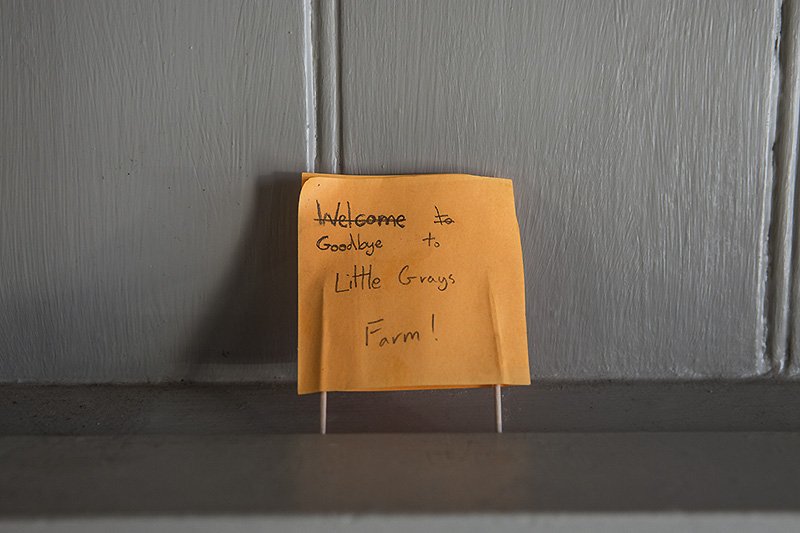 Welcome to
Goodbye to
Little Grays
Farm!